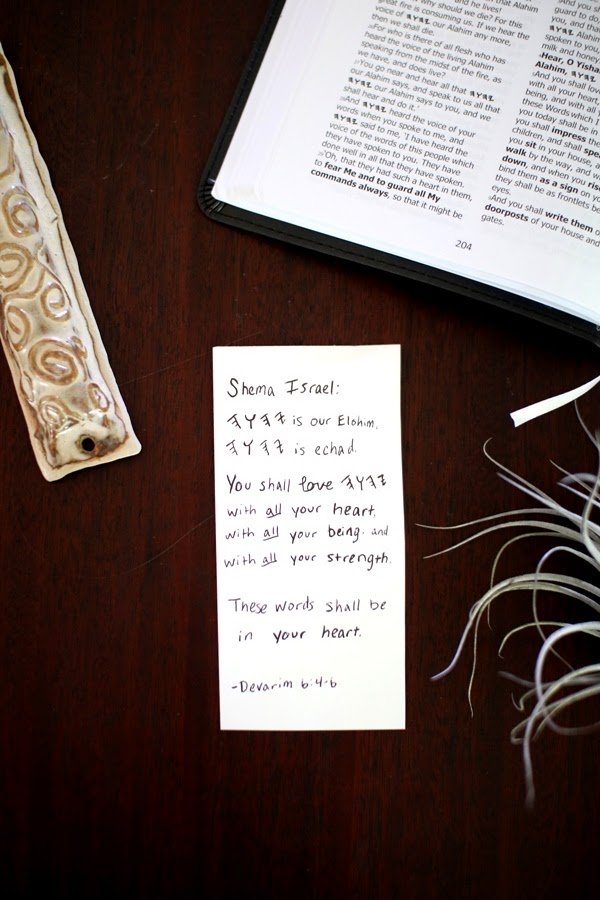 and he lives!
why should we die? For this
great fire is consuming us. If we hear the
voice of 𐤉𐤄𐤅𐤄 our Alahim any more,
then we shall die.
For who is there of all flesh who has
heard the voice of the living Alahim
speaking from the midst of the fire, as
we have, and does live?
You go near and hear all that 𐤉𐤄𐤅𐤄
our Alahim says, and speak to us all that
𐤉𐤄𐤅𐤄 our Alahim says to you, and we
shall hear and do it.'
And 𐤉𐤄𐤅𐤄 heard the voice of your
words when you spoke to me, and
𐤉𐤄𐤅𐤄 said to me, 'I have heard the
voice of the words of this people which
they have spoken to you. They have
done well in all that they have spoken.
Oh, that they had such a heart in them,
to fear Me and to guard all My
commands always, so that it might be
And you
guard to do,
you, and that
spoken to you,
milk and honey
Hear, O
Alahim, 𐤉𐤄𐤅𐤄
And you shall
with all your heart,
being, and with all
these Words which I
you today shall be in
you shall impress
children, and shall
you sit in your house, a
walk by the way, and w
down, and when you rise
bind them as a sign on yo
they shall be as frontlets be
eyes.
And you shall write them o
doorposts of your house and
gates.
204
Shema Israel:
𐤉𐤄𐤅𐤄 is our Elohim,
𐤉𐤄𐤅𐤄 is echad.
You shall love 𐤉𐤄𐤅𐤄
with all your heart,
with all your being, and
with all your strength.
These words shall be
in your heart.
-Devarim 6:4-6